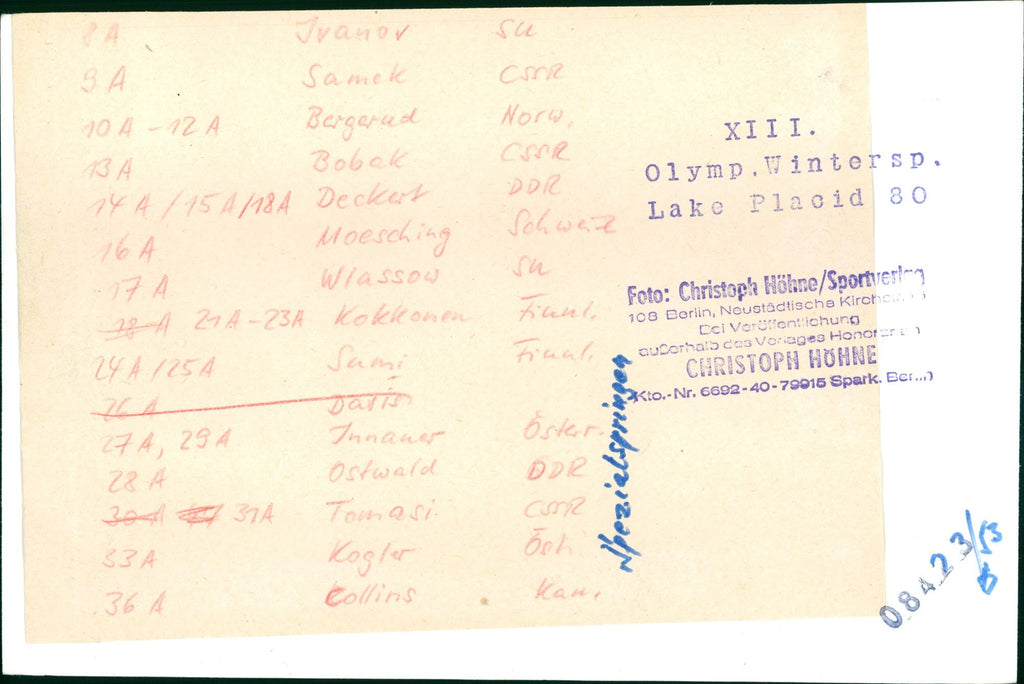 8A Ivanov SU
9A Samek CSSR
10A - 12A Bergerud Norw.
13A Bobak CSSR
14A / 15A / 18A Deckert DDR
16A Moesching Schweiz
17A Wlassow SU
18A 21A - 23A Kokkonen Finnl.
24A / 25A Sumi Finnl.
26A Davis
27A, 29A Innauer Österr.
28A Ostwald DDR
30A 31A Tomasi CSSR
33A Kogler Öst.
36A Collins Kan.
XIII.
Olymp. Wintersp.
Lake Placid 80
Foto: Christoph Höhne/Sportverlag
108 Berlin, Neustädtische
Bei Veröffentlichung
außerhalb des Verlages
CHRISTOPH HÖHNE
Kto.-Nr. 6692-40-79915 Spark.
Spezialspringen
08423/53